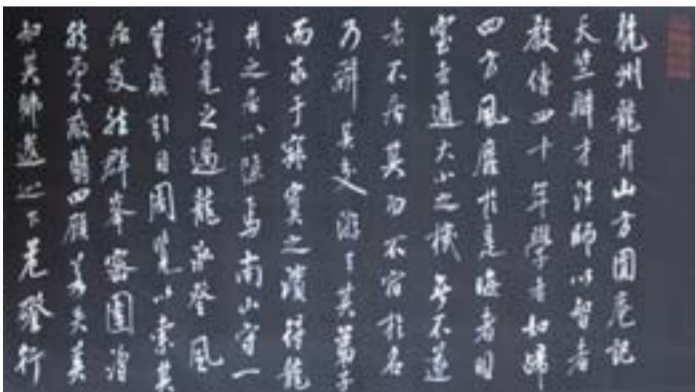 杭州龍井山方圓庵記
天竺辯才法師以智者
教傳四十年學者如歸
四方風靡於是晦者明
窒者通大小之機無不遂
者不居其功不宿於名
乃辭其交遊去其弟子
而求于寂寞之濱得龍
井之居以隱焉南山守一
往見之過龍泓登風
篁嶺引目周覽以索其
居岌然群峯密圍溶
然而不蔽翳四顧若失莫
知其鄉逡巡下危磴行